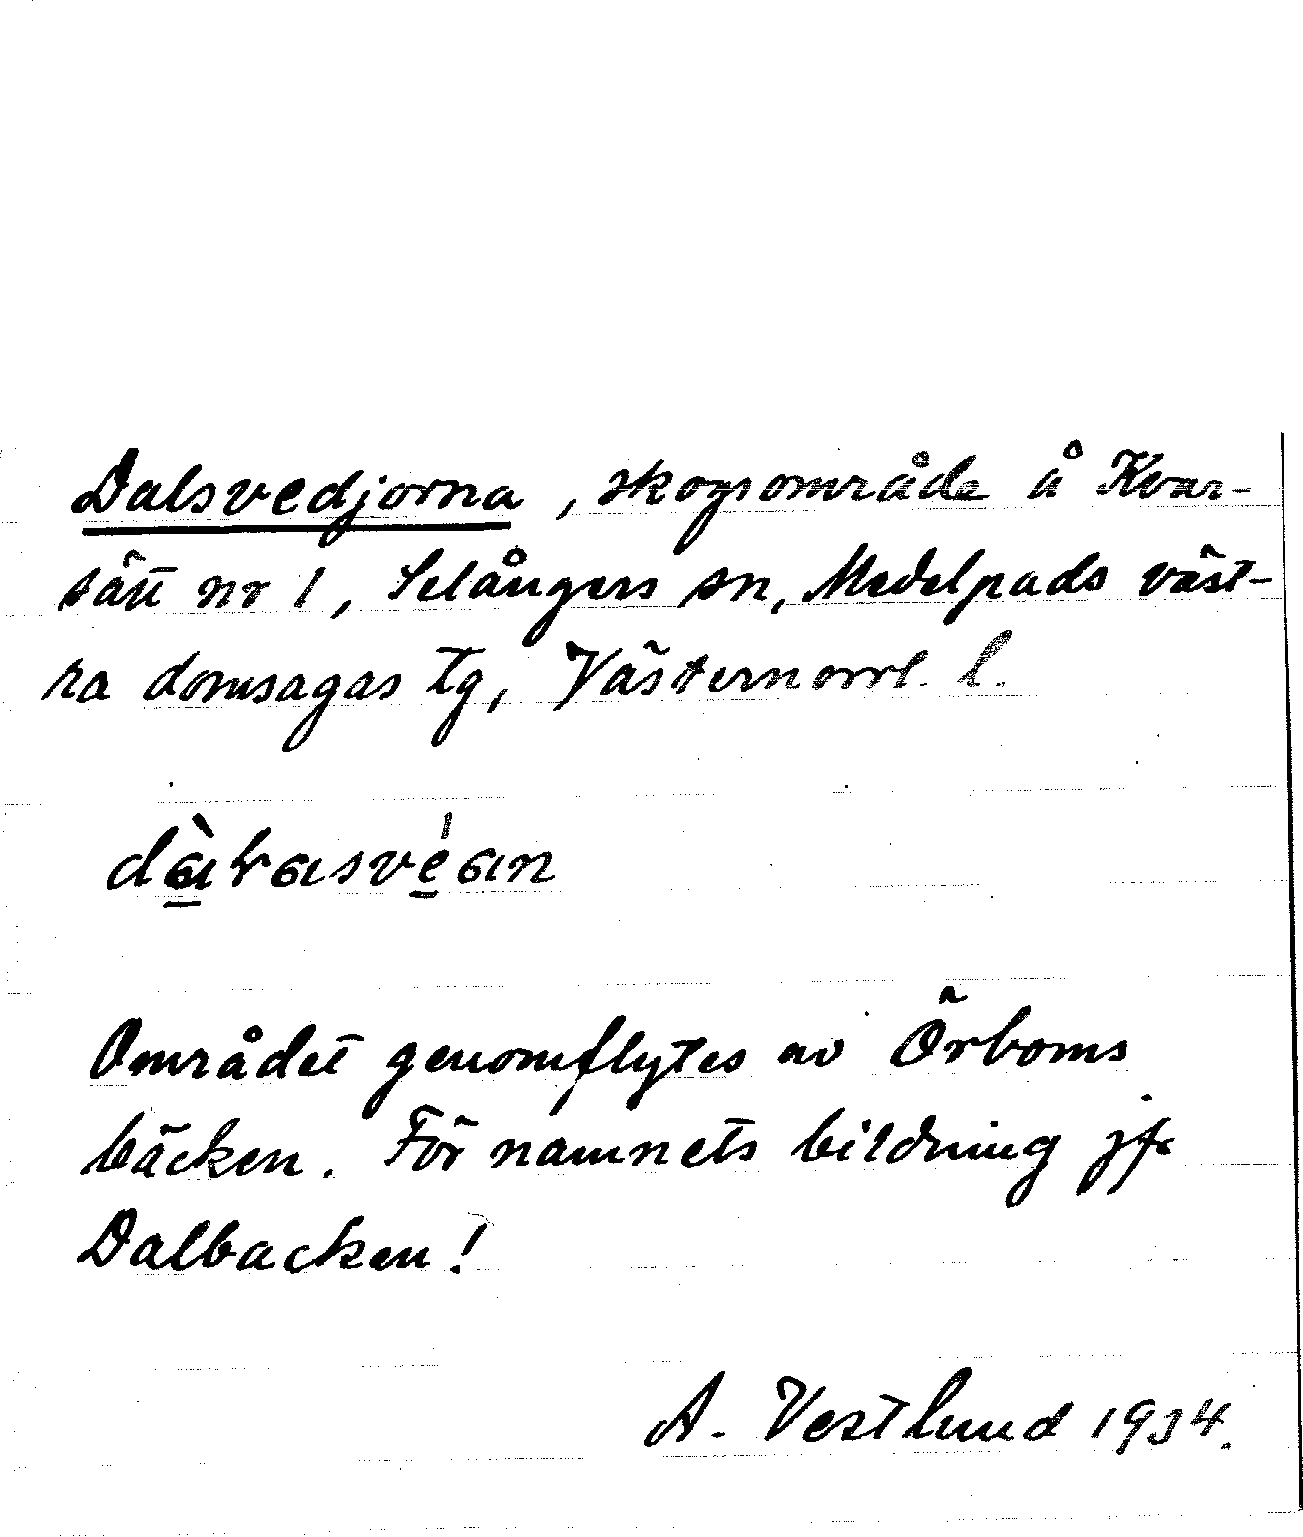 Dalsvedjorna, skogsområde å Kvar-
sätt nr 1, Selångers sn, Medelpads väst-
ra domsagas tg, Västernorrl. l.
Området genomflytes av Örboms
bäcken. För namnets bildning jfr
Dalbacken!
A. Vestlund 1934.